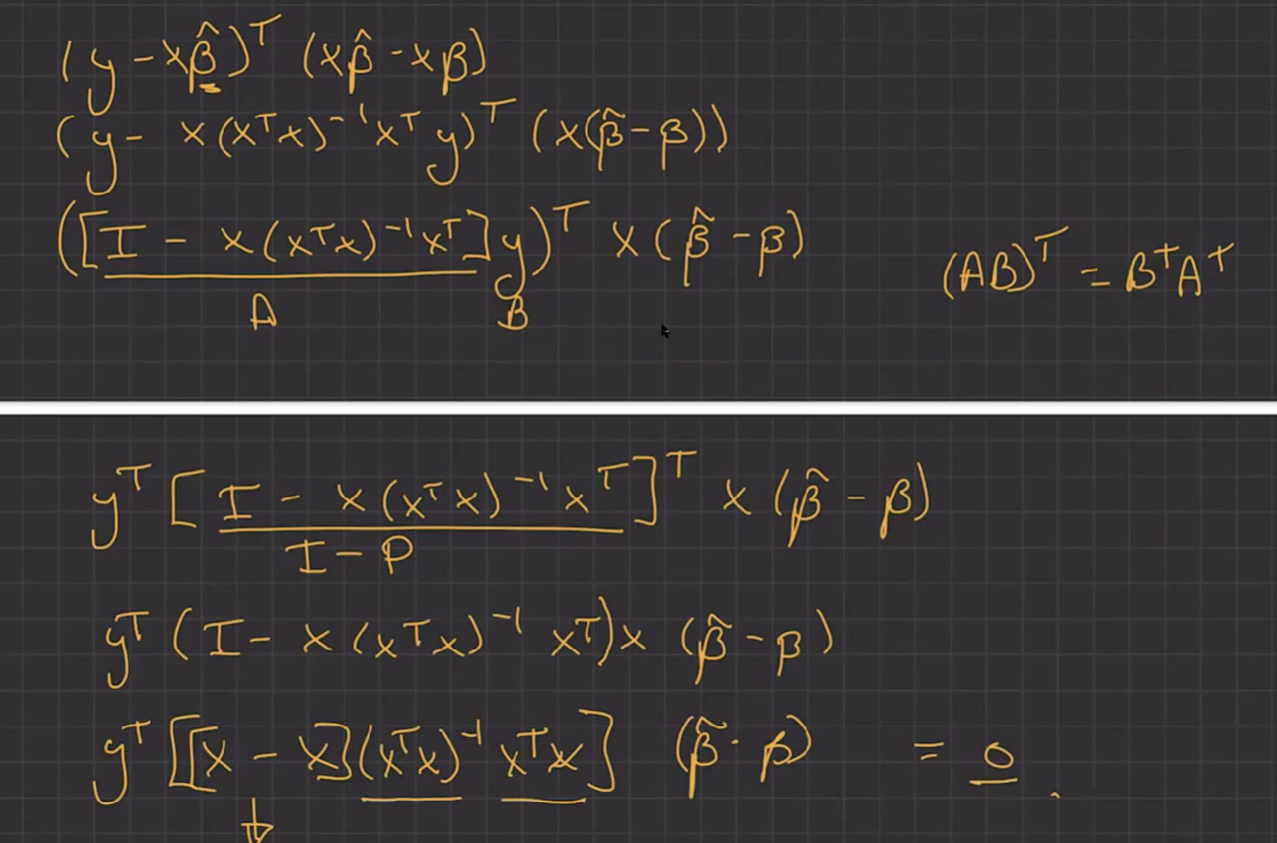 (y - xβ̂)ᵀ (xβ̂ - xβ)
(y - x(xᵀx)⁻¹xᵀy)ᵀ (x(β̂ - β))
([I - x(xᵀx)⁻¹xᵀ]y)ᵀ x(β̂ - β)
(AB)ᵀ = BᵀAᵀ
A B
yᵀ [I - x(xᵀx)⁻¹xᵀ]ᵀ x(β̂ - β)
I - P
yᵀ (I - x(xᵀx)⁻¹ xᵀ)x (β̂ - β)
yᵀ [[x - x](xᵀx)⁻¹ xᵀx] (β̂ - β) = 0